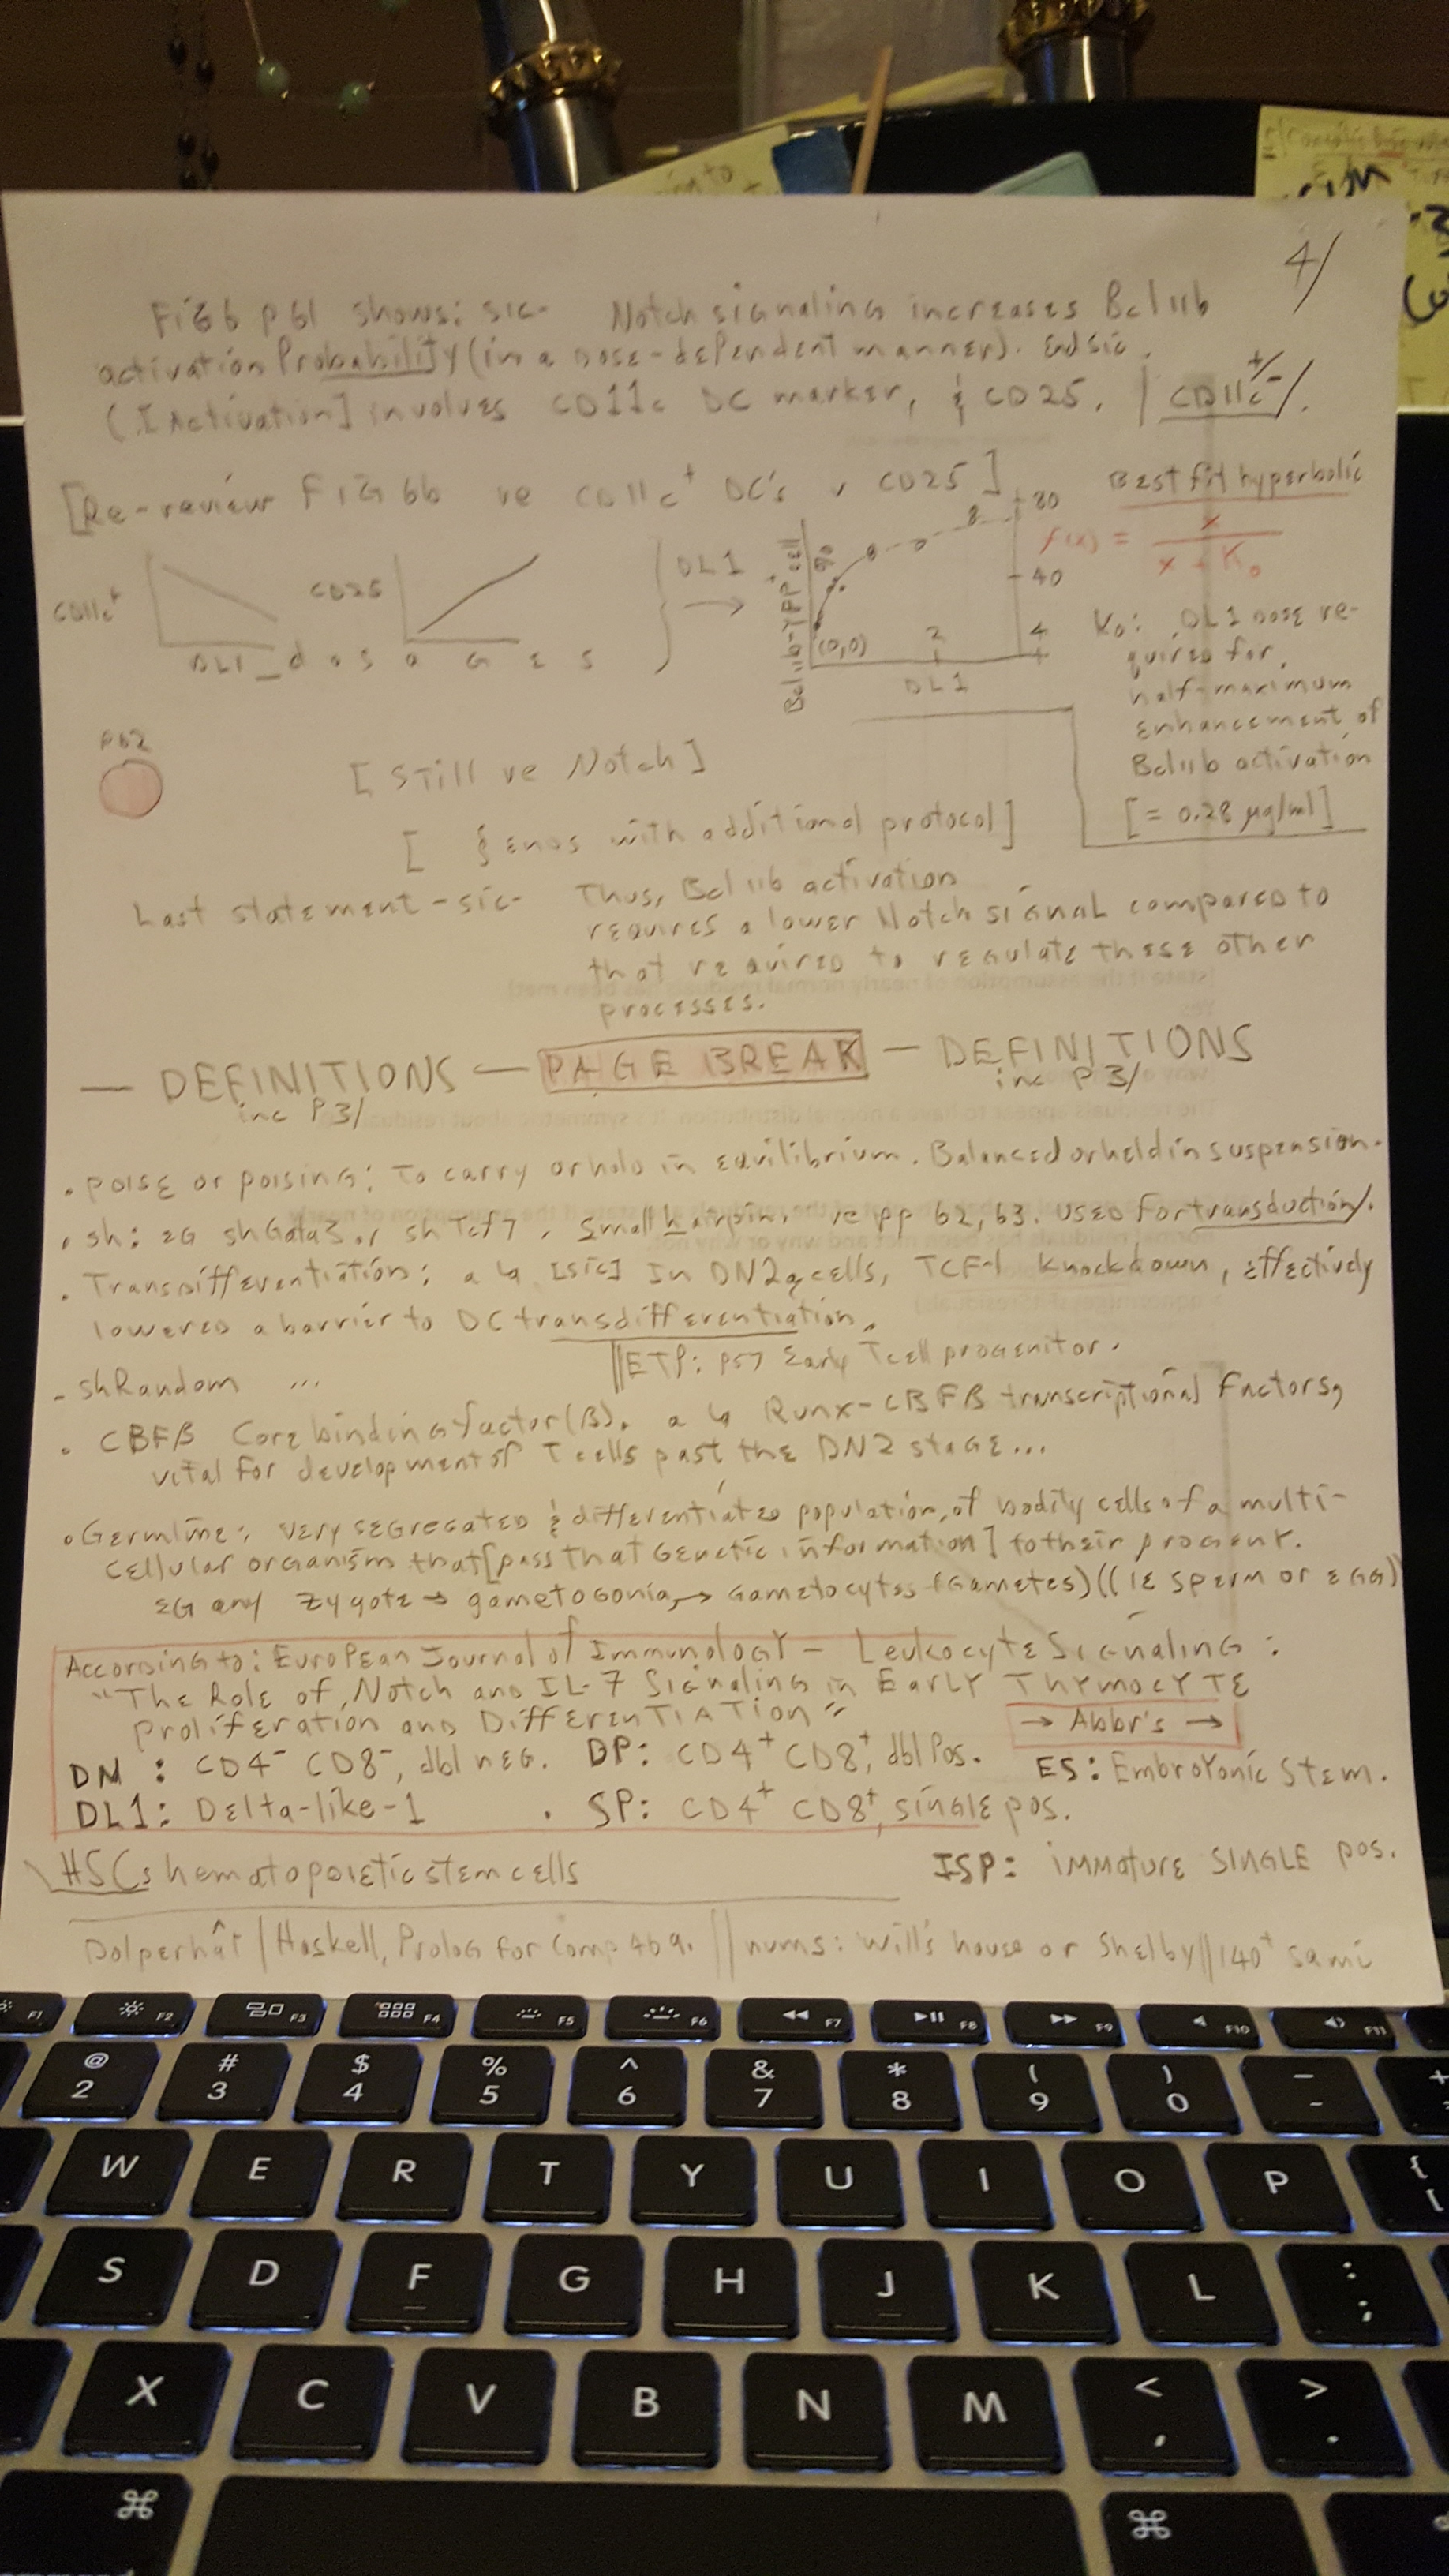 4/
FiG 6 p 61 shows: sic- Notch signaling increases Bcl11b
activation Probability (in a dose-dependent manner). End sic.
([Activation] involves CD11c DC marker, & CD25. | CD11c +/- /.
[Re-review FIG 6b re CD11c+ DC's v CD25]
Best fit hyperbolic
f(x) = x / x + K₀
CD11c+
CD25
DL1_dosaGES
DL1
→
Bcl11b-YFP+ cell %
80
40
4
(0,0)
2
DL1
K₀: DL1 dose re-
quired for
half-maximum
enhancement of
Bcl11b activation
[= 0.28 µg/ml]
p62
[Still re Notch]
[ & ends with additional protocol]
Last statement - sic- Thus, Bcl11b activation
requires a lower Notch signaL compared to
that required to regulate these other
processes.
— DEFINITIONS — PAGE BREAK — DEFINITIONS
inc P 3/ inc P 3/
. poise or poising: To carry or hold in equilibrium. Balanced or held in suspension.
. sh: EG shGata3 or shTcf7. Small hairpin. re pp 62, 63. Used for transduction/.
. Transdifferentiation: a ↳ [sic] In DN2a cells, TCF-1 knockdown, effectively
lowered a barrier to DC transdifferentiation.
||ETP: p57 Early Tcell progenitor.
- shRandom ...
. CBFβ Core binding factor (β). a ↳ Runx-CBFβ transcriptional factors,
vital for development of T cells past the DN2 stage...
. Germline: very segregated & differentiated population, of bodily cells of a multi-
cellular organism that [pass that Genetic information] to their progeny.
EG any zygote → gametogonia → Gametocytes (Gametes) ((IE sperm or EGG))
According to: European Journal of Immunology - Leukocyte Signaling:
"The Role of Notch and IL-7 Signaling in Early Thymocyte
Proliferation and Differentiation"
→ Abbr's →
DN : CD4⁻ CD8⁻, dbl neg. DP: CD4⁺ CD8⁺, dbl Pos. ES: Embroyonic Stem.
DL1: Delta-like-1 . SP: CD4⁺ CD8⁺, single pos.
\HSCs hematopoietic stem cells ISP: immature SINGLE pos.
Dolperhât | Haskell, Prolog for Comp 469. || nums: Will's house or Shelby || 140⁺ sami
F1 F2 F3 F4 F5 F6 F7 F8 F9 F10 F11
@ # $ % ^ & * ( ) — +
2 3 4 5 6 7 8 9 0 -
W E R T Y U I O P { [
S D F G H J K L : ;
X C V B N M < , > .
⌘ ⌘